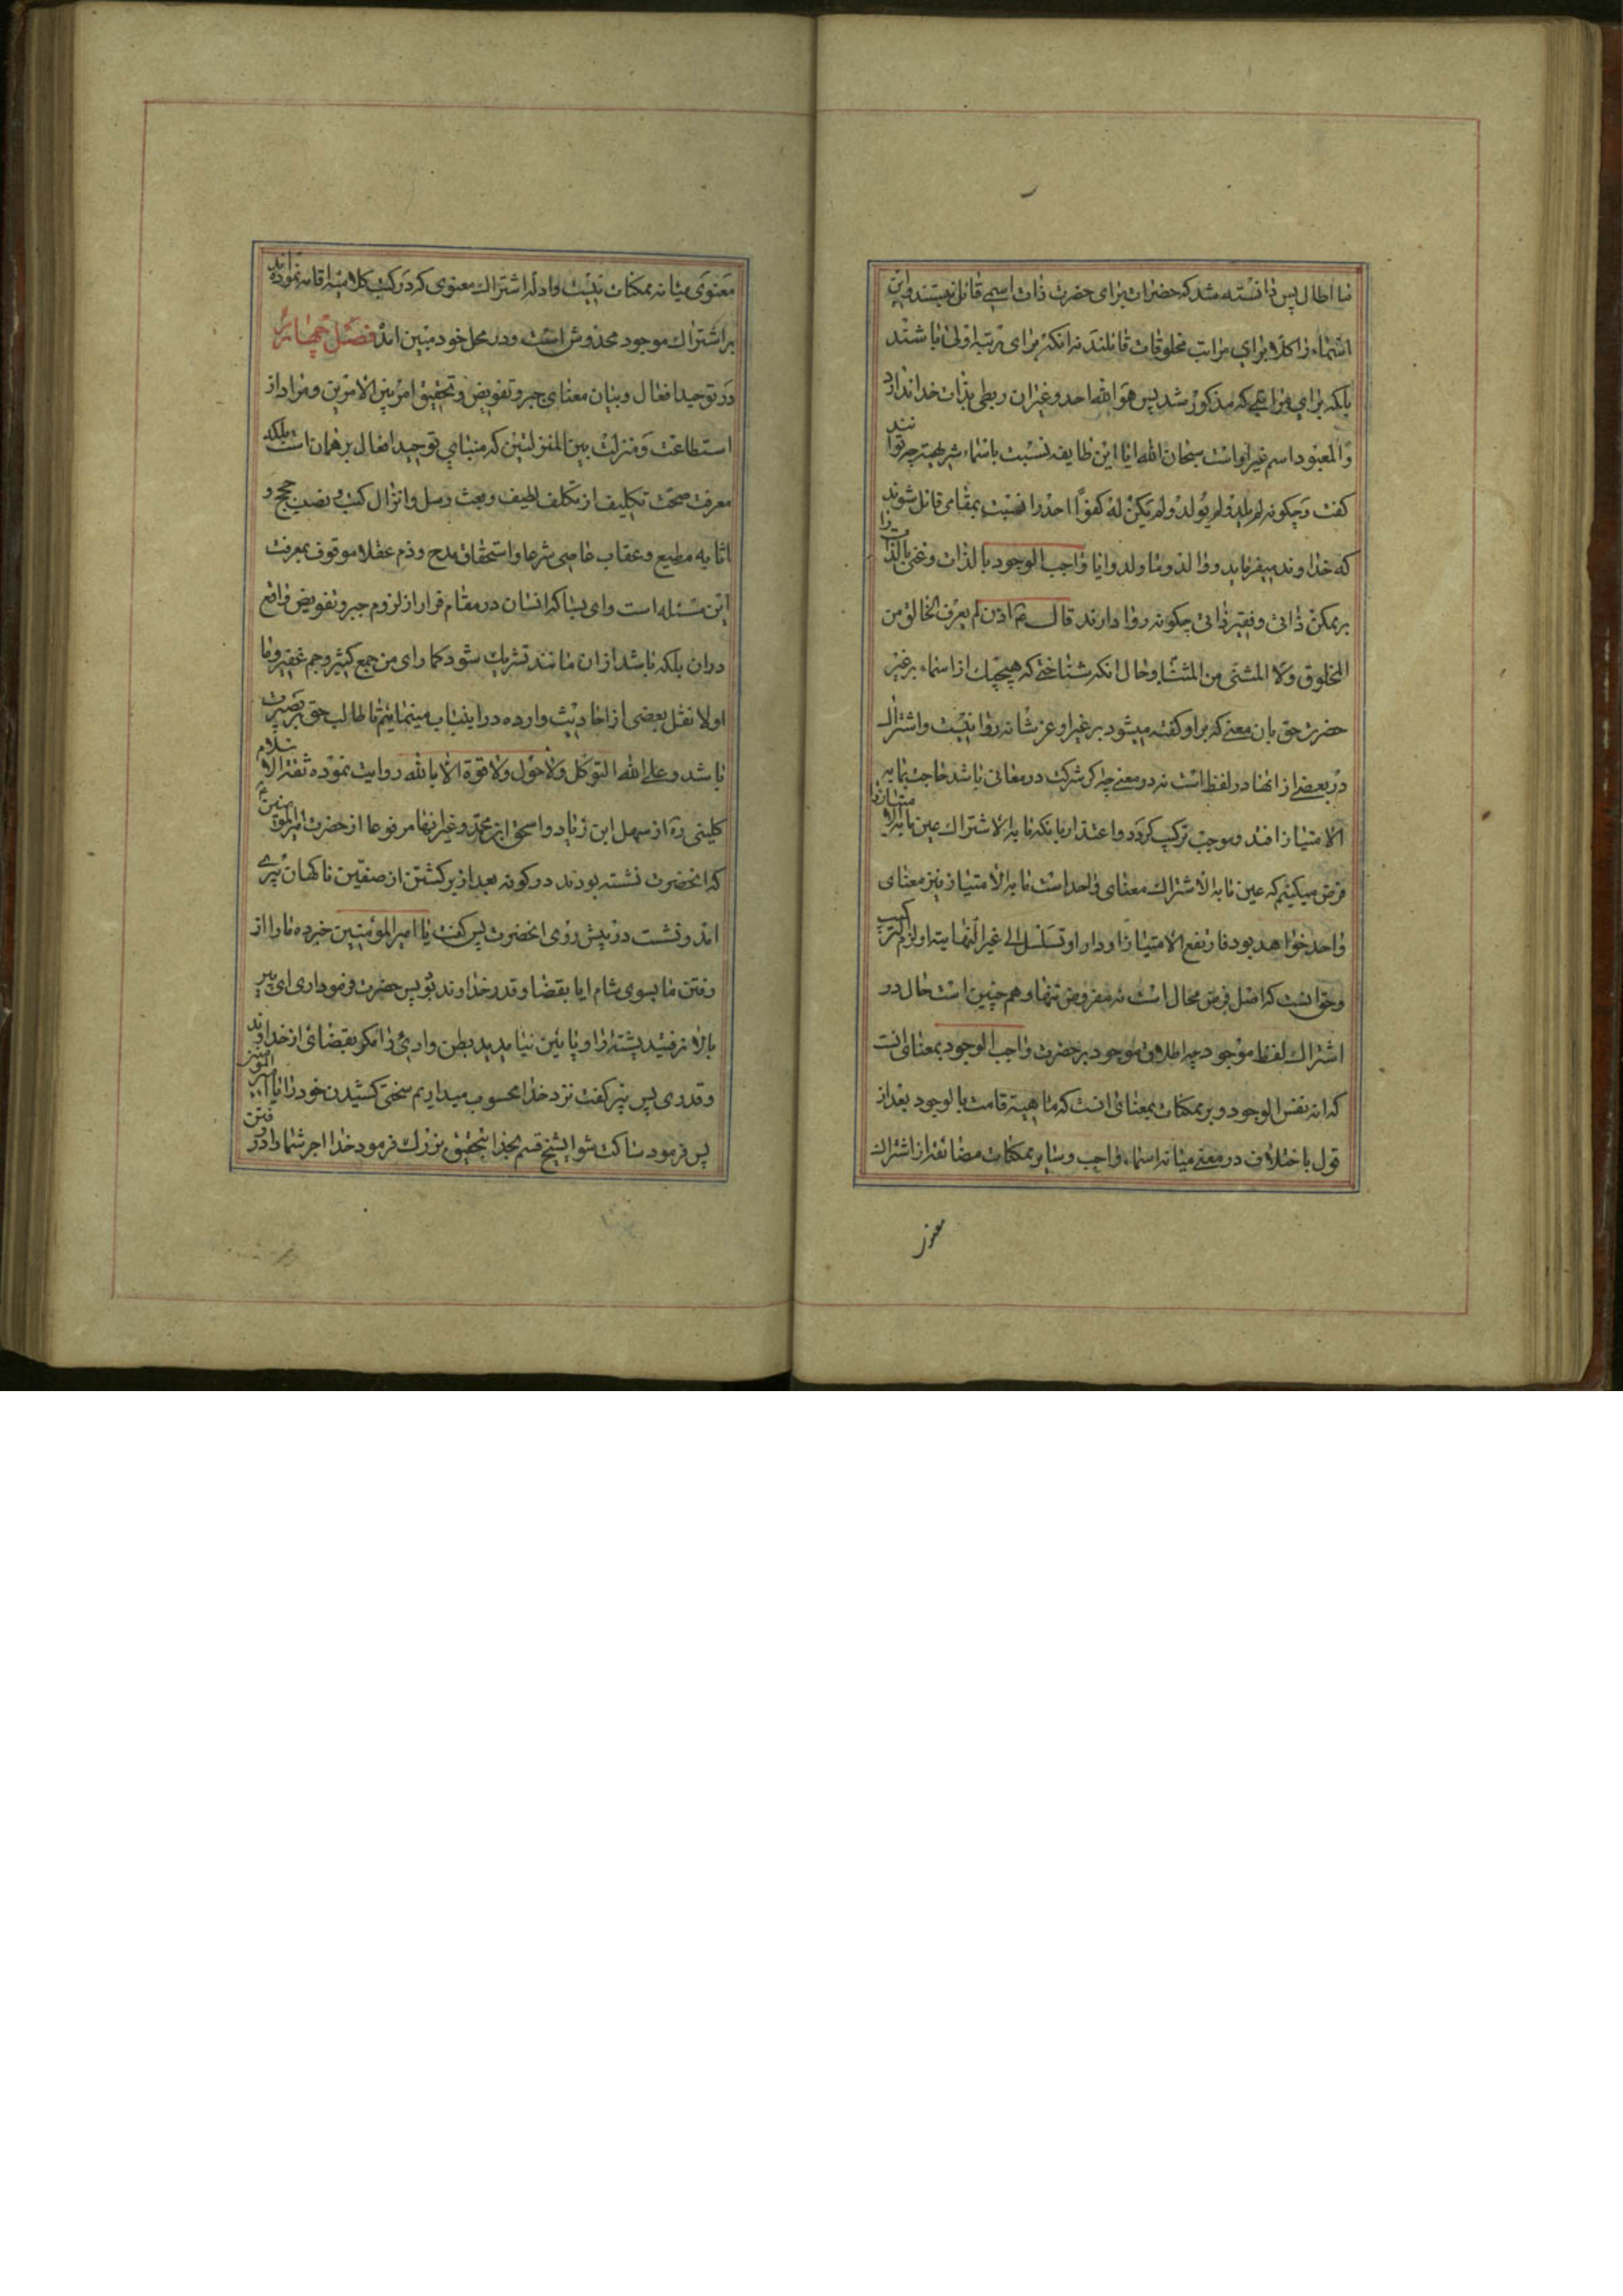 ما اطال پس دانسته شد که حضرات برای حضرت ذات اسمی قائل نیستند و این
اسماء را کلا برای مراتب مخلوقات قائلند نه انکه برای مرتبه اولی باشند
بلکه برای مراتبی که مذکور شد پس هو الله احد و غیر ان ربطی بذات خدا ندارد
و المعبود اسم غیر او است سبحان الله ایا این طایفه نسبت باسماء شریفه چه توانند
کفت و چکونه لم یلد و لم یولد و لم یکن له کفوا احد را نسبت بمقامی قائل شوند
که خداوند میفرماید و والد و ما ولد و ایا واجب الوجود بالذات و غنی بالذات را
بر ممکن ذاتی و فقیر ذاتی چکونه روا دارند قال اذن لم یعرف الخالق من
المخلوق و لا المنشئ من المنشأ و حال انکه شناختی که هیچیک از اسماء بر غیر
حضرت حق بان معنی که بر او کفته میشود بر غیر او عز شانه روا نیست و اشتراک
در بعضی از انها در لفظ است نه در معنی چه کر شرکت در معانی باشد حاجت بما به
الامتیاز افتد و موجب ترکیب کردد و اعتذار بانکه ما به الاشتراک عین ما به الامتیاز را
فرض میکنیم که عین ما به الاشتراک معنای واحد است ما به الامتیاز نیز معنای
واحد خواهد بود فارتفع الامتیاز او دار او تسلسل الی غیر النهایة او لزم الترکیب
و حق انست که اصل فرض محال است نه مفروض تنها و هم چنین است حال در
اشتراک لفظ موجود چه اطلاق موجود بر حضرت واجب الوجود بمعنای انست
که انه نفس الوجود و بر ممکنات بمعنای انست که ماهیة قامت بالوجود بعد از
قول باختلاف در معنی میانه اسماء واجب و سایر ممکنات مضائقه از اشتراک
معنوی
معنوی میانه ممکنات نیست و ادله اشتراک معنوی که در کتب کلامیه اقامه نموده‌اند
بر اشتراک موجود مخدوش است و در محل خود مبین اند فصل چهارم
در توحید افعال و بیان معنای جبر و تفویض و تحقیق امر بین الامرین و مراد از
استطاعت و منزلت بین المنزلتین که مبنای توحید افعال بر همان است بلکه
معرفت صحت تکلیف از مکلف لطیف و بعث رسل و انزال کتب و نصب حجج و
اثابه مطیع و عقاب عاصی شرعا و استحقاق مدح و ذم عقلا موقوف بمعرفت
این مسئله است و ای بسا که انسان در مقام فرار از لزوم جبر و تفویض واقع
در ان بلکه باشد از ان مانند تشریک شود کما رای من جمع کثیر و جم غفیر و ما
اولا نقل بعضی از احادیث وارده در اینباب مینمائیم تا طالب حق بر بصیرت
باشد و علی الله التوکل و لا حول و لا قوة الا بالله روایت نموده ثقة الاسلام
کلینی ره از سهل ابن زیاد و اسحق ابن محمد و غیر انها مرفوعا از حضرت امیر المومنین ع
که انحضرت نشسته بودند در کوفه بعد از برکشتن از صفین ناکهان پیری
امد و نشست در پیش روی انحضرت پس کفت یا امیر المؤمنین خبر ده ما را از
رفتن ما بسوی شام ایا بقضا و قدر خداوند بود پس حضرت فرمود اری ای پیر
بالا نرفتید پشته را و پائین نیامدید بطن وادی را مکر بقضائی از خداوند
و قدری پس پیر کفت نزد خدا محسوب میداریم سختی کشیدن خود را یا امیر المومنین
پس فرمود ساکت شو ای شیخ قسم بخدا بتحقیق بزرک فرمود خدا اجر شما را در رفتن